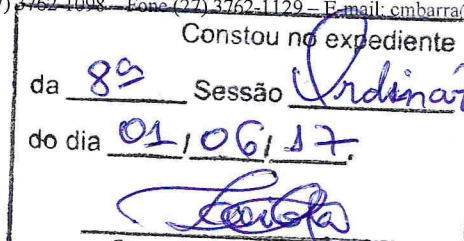 3762-1098 – Fone (27) 3762-1129 – E-mail: cmbarra
Constou no expediente
da 8ª Sessão Ordinár
do dia 01/06/17.